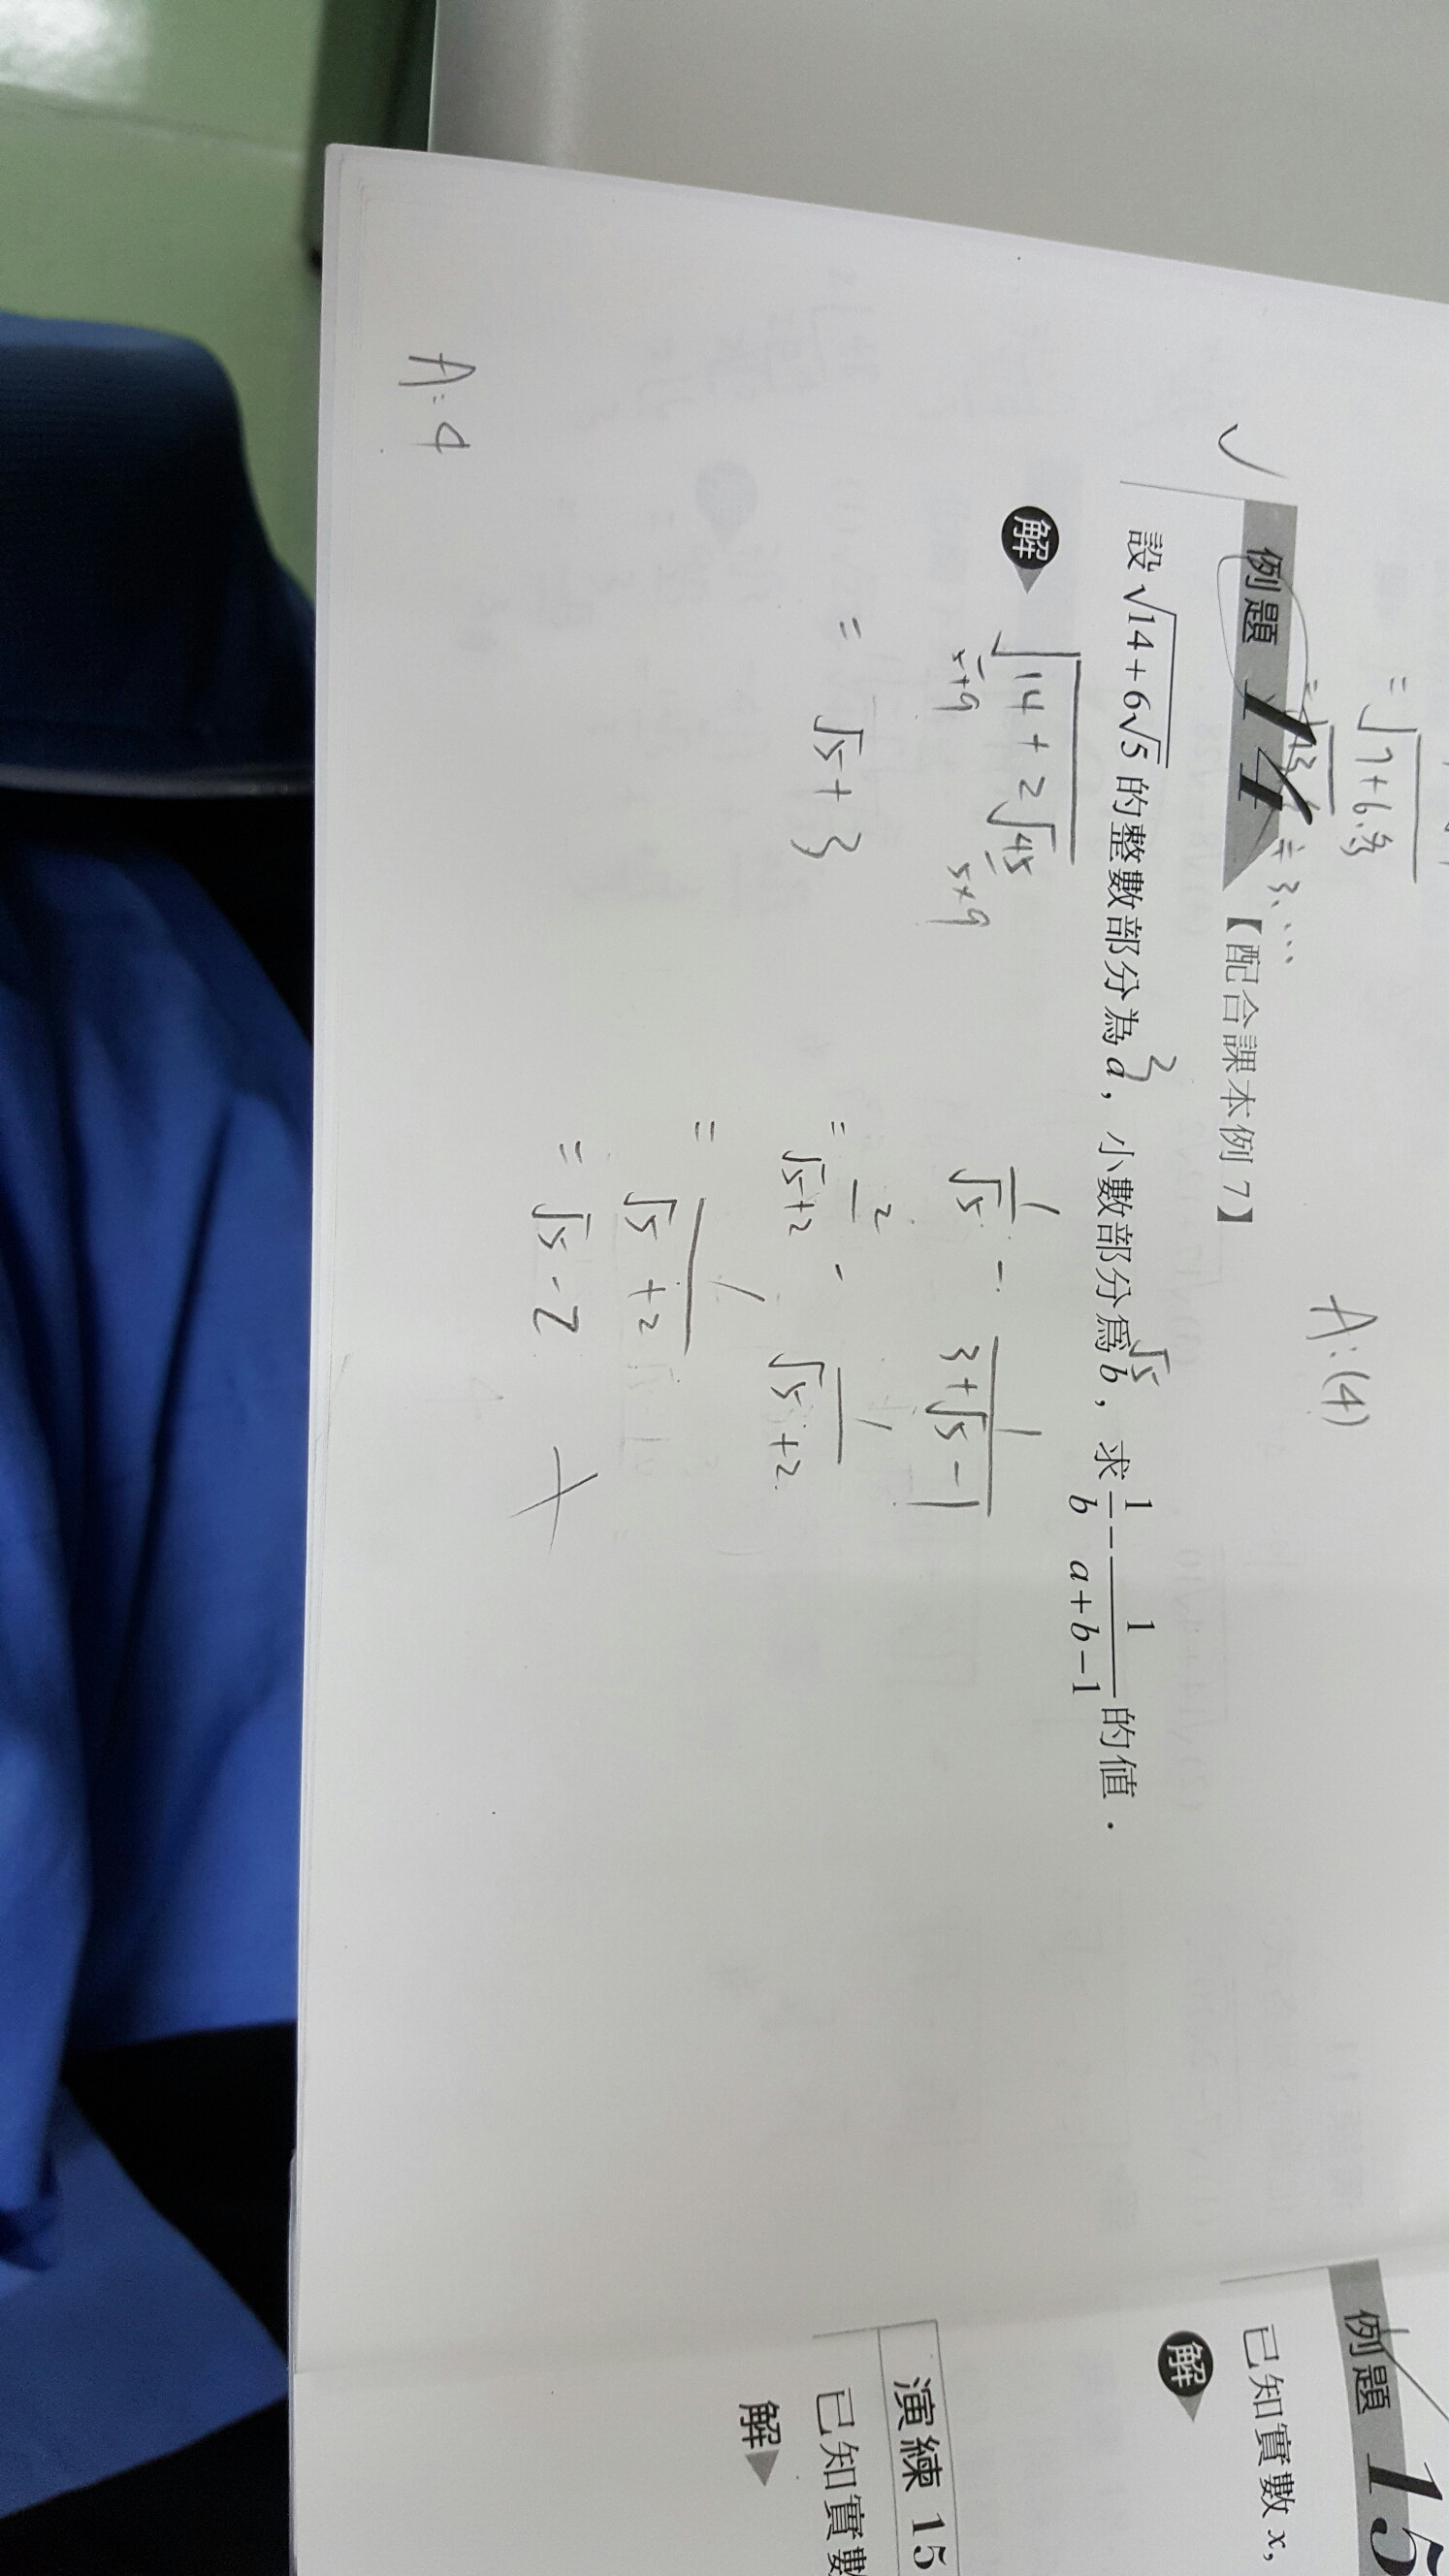 = √7+6.多
= √13.6 ≒ 3....
A:(4)
例題 14 【配合課本例 7】
設 √14+6√5 的整數部分為 a，小數部分為 b，求 1/b − 1/(a+b−1) 的值．
3
√5
解
√14+2√45
5+9
5×9
= √5+3
1/√5 - 1/(3+√5-1)
= 2/(√5+2) - 1/(√5+2)
= 1/(√5+2)
= √5-2
A:4
例題 15
已知實數 x,
解
演練 15
已知實數
解